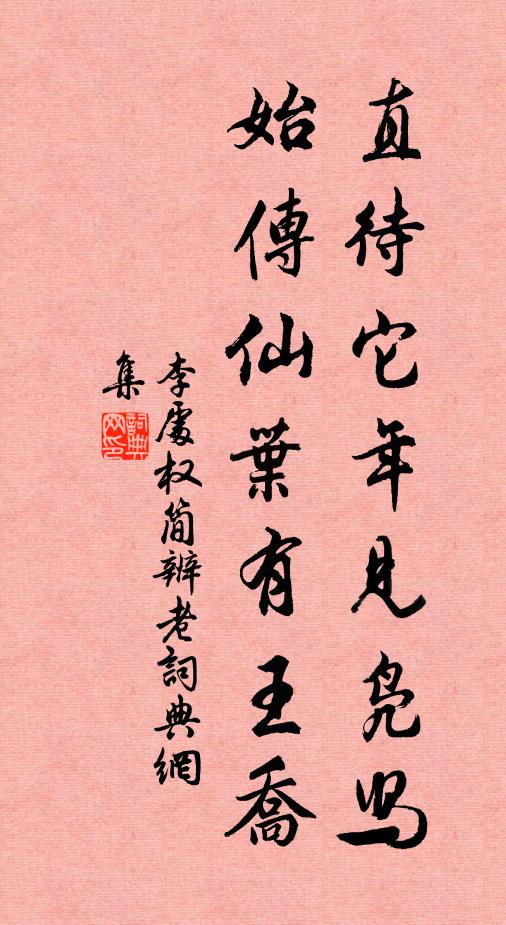 直待它年見鳧舄
始傳仙葉有王喬
李處权簡辨老詞典網
集
詞典
网印